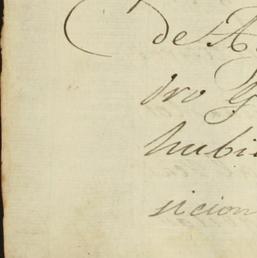 de A
dro
hubi
sicion